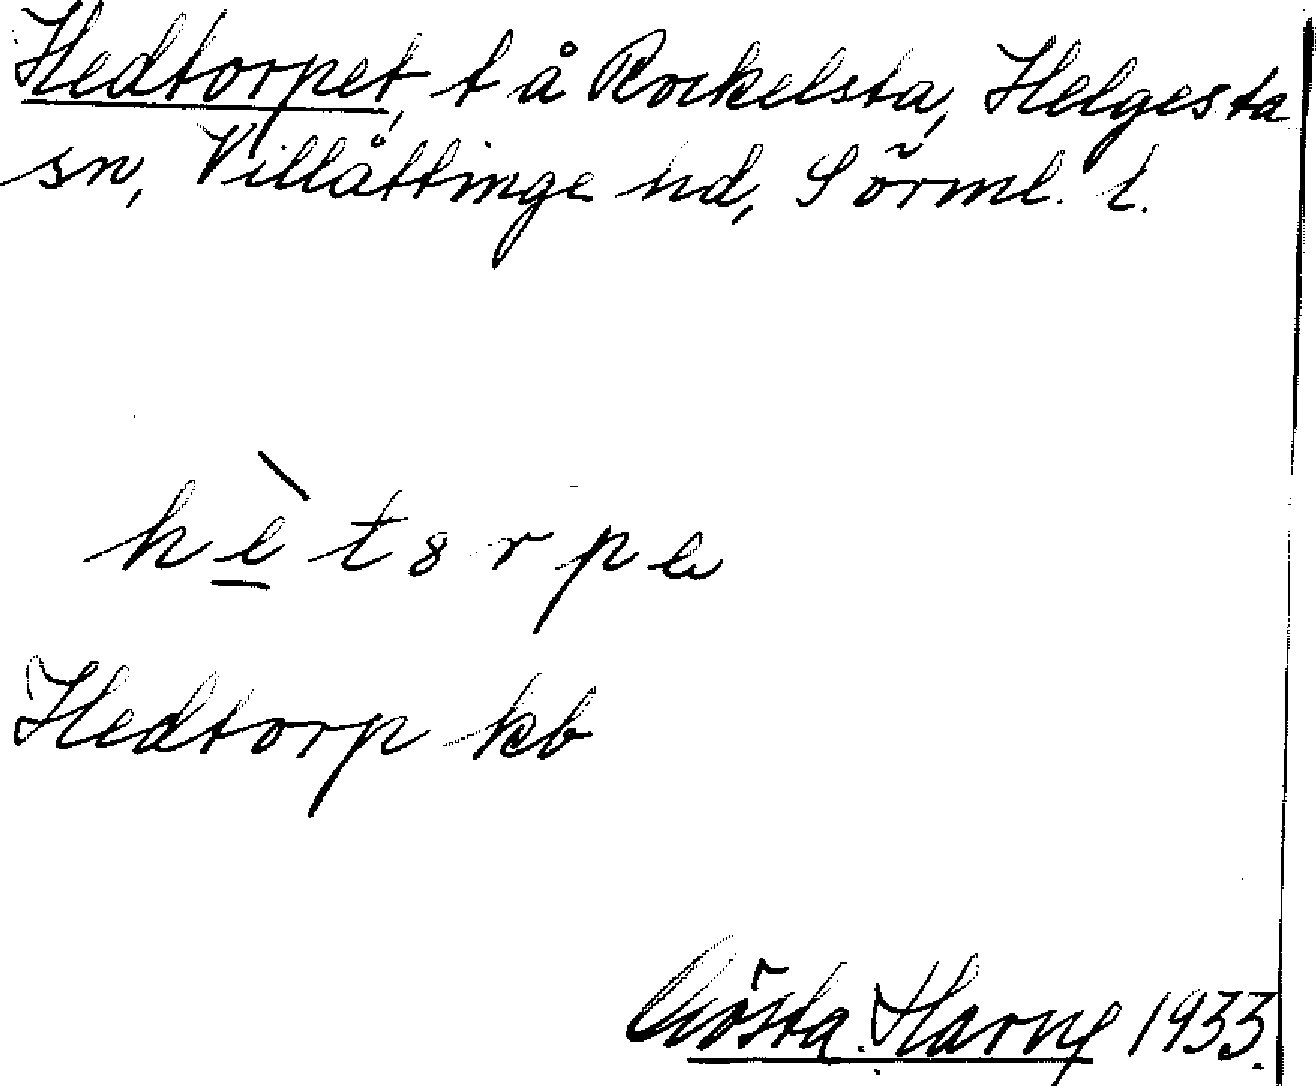 Hedtorpet, t å Rockelsta, Helgesta
sn, Villåttinge hd, Sörml. l.
hètorpe
Hedtorp kb
Gösta Harng 1933.